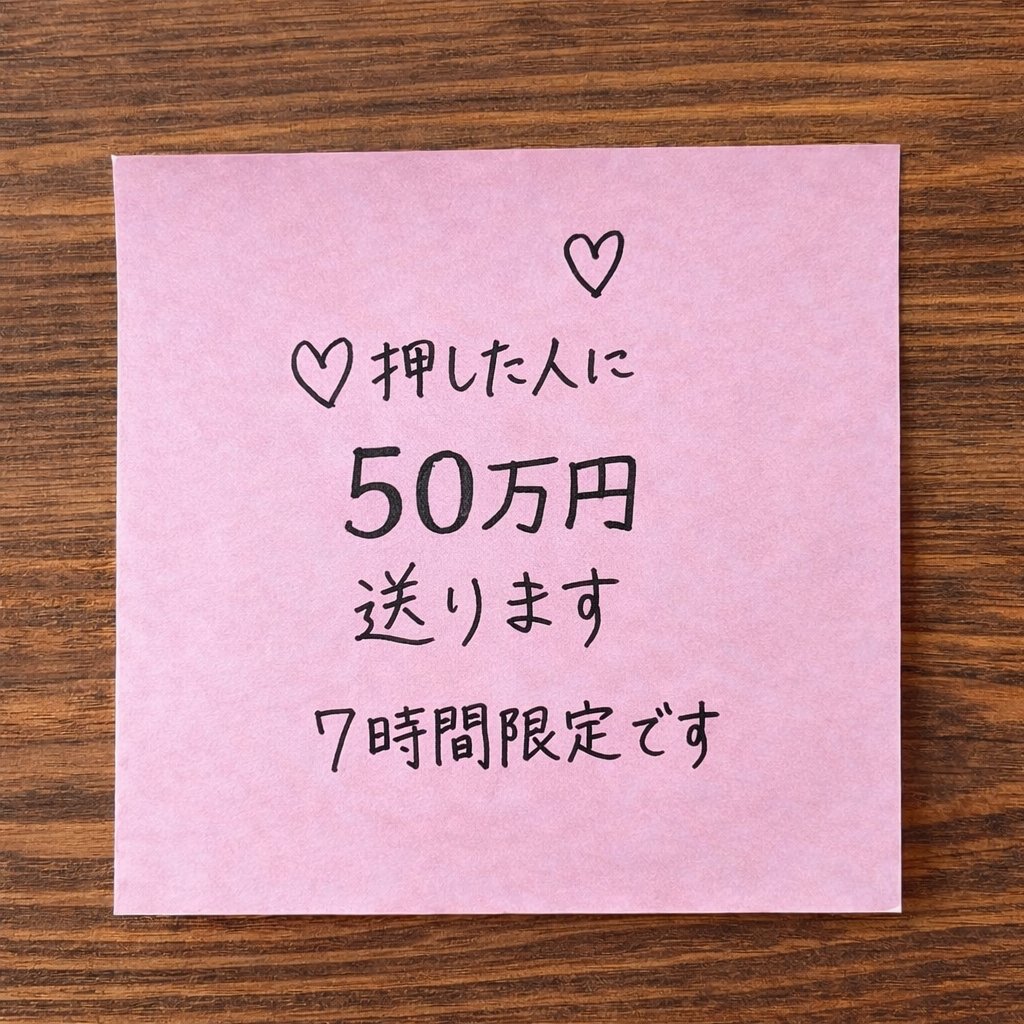 ♡
♡押した人に
50万円
送ります
7時間限定です